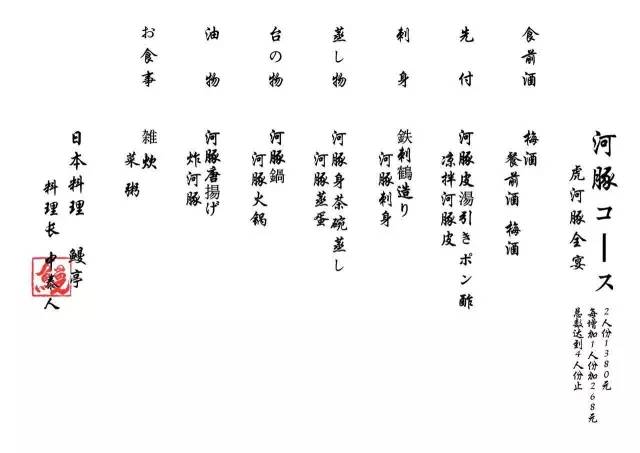 河豚コース
虎河豚全宴
2人份1380元
每增加1人份加268元
总数达到4人份止
食前酒
梅酒
餐前酒 梅酒
先付
河豚皮湯引きポン酢
凉拌河豚皮
刺身
鉄刺鶴造り
河豚刺身
蒸し物
河豚身茶碗蒸し
河豚蒸蛋
台の物
河豚鍋
河豚火锅
油物
河豚唐揚げ
炸河豚
お食事
雑炊
菜粥
日本料理 鰻亭
料理长 中泰人
鰻